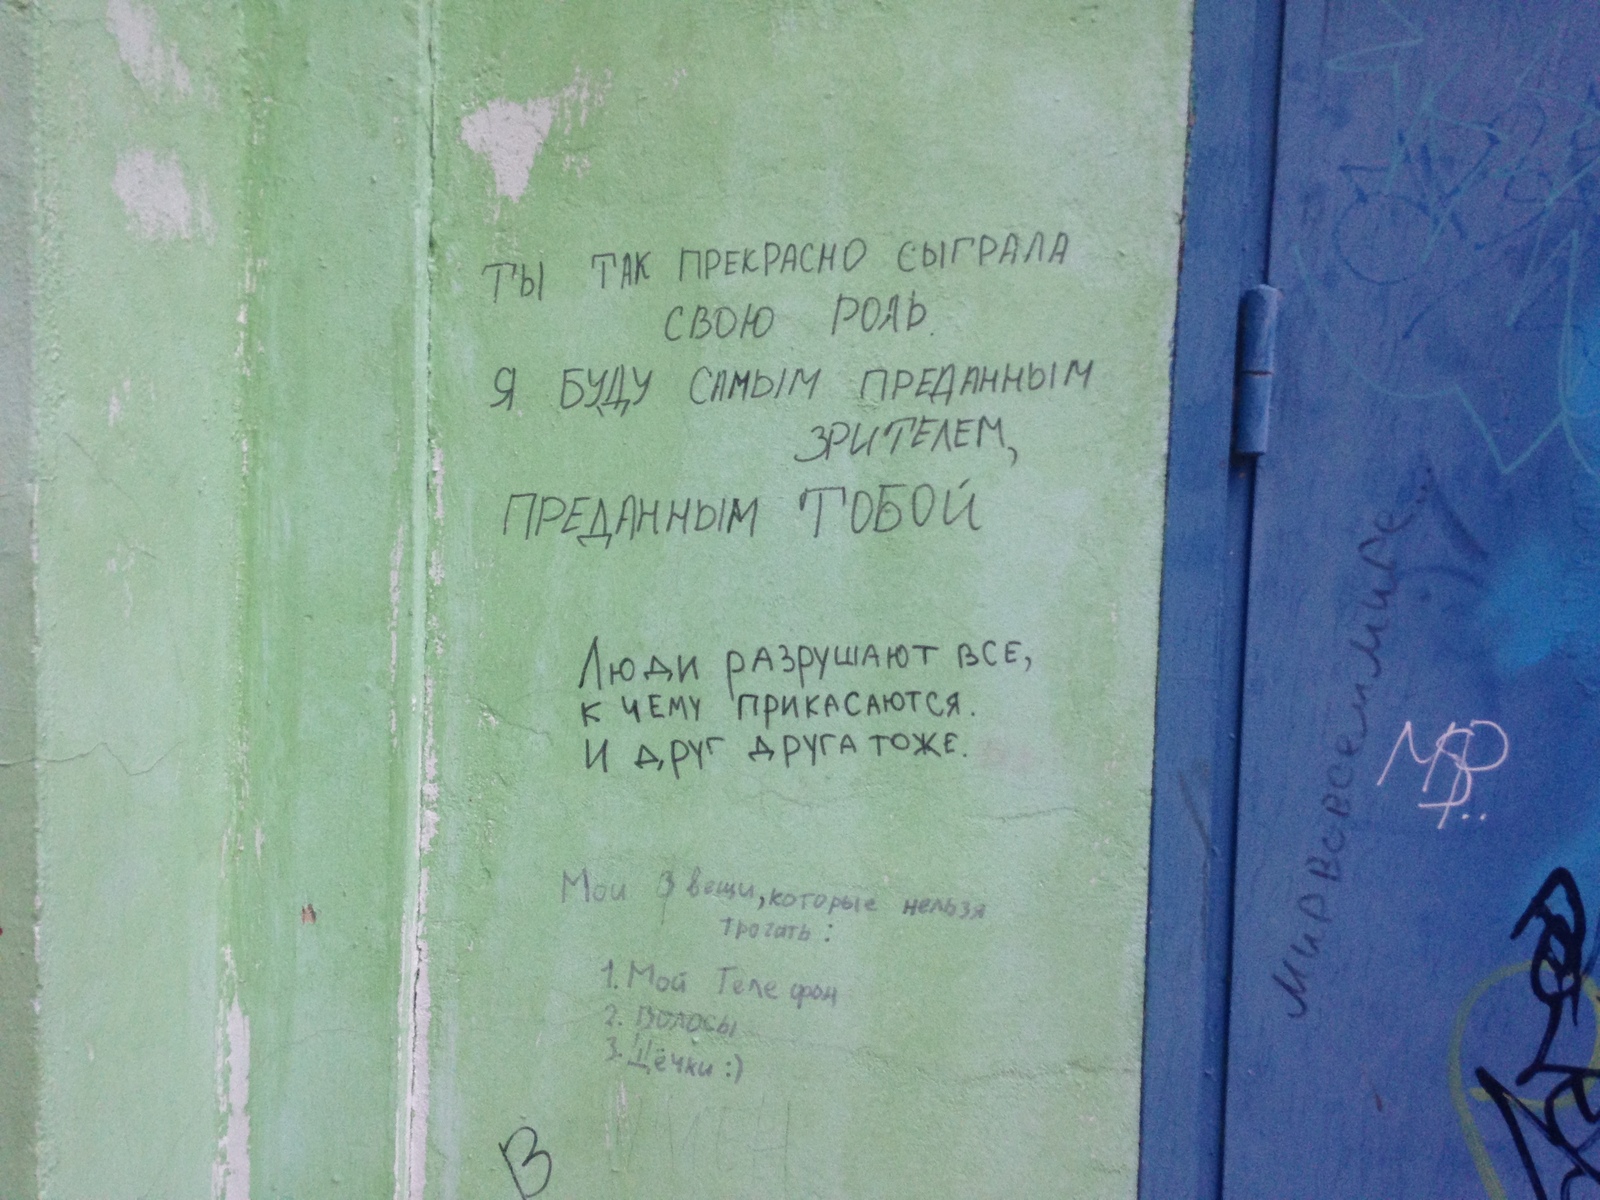 ТЫ ТАК ПРЕКРАСНО СЫГРАЛА
СВОЮ РОЛЬ.
Я БУДУ САМЫМ ПРЕДАННЫМ
ЗРИТЕЛЕМ,
ПРЕДАННЫМ ТОБОЙ
Люди разрушают все,
к чему прикасаются.
И друг друга тоже.
Мои 3 вещи, которые нельзя
трогать:
1. Мой Телефон
2. Волосы
3. Щёчки :)
В
Мир во всем мире...